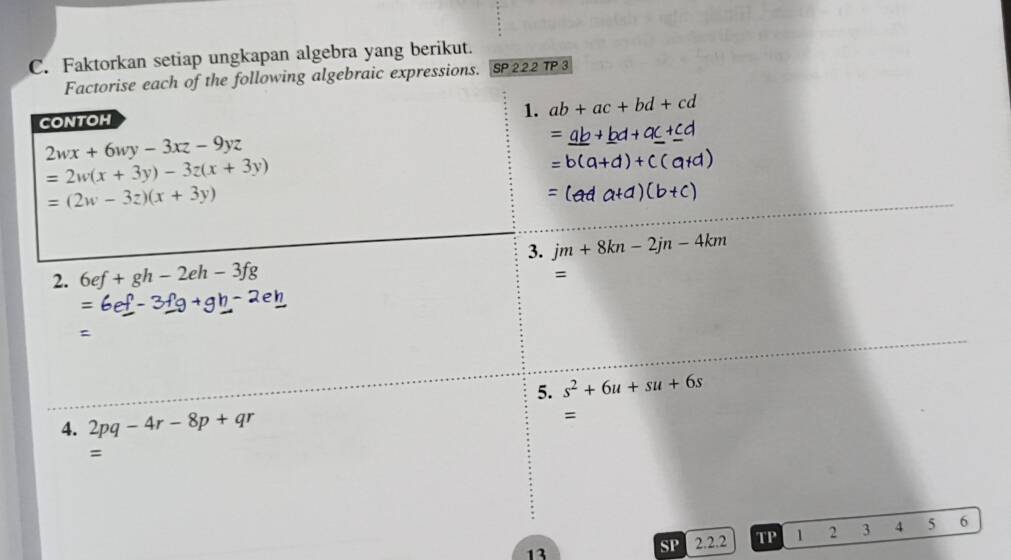 C. Faktorkan setiap ungkapan algebra yang berikut.
Factorise each of the following algebraic expressions. SP 2.2.2 TP 3
CONTOH
2wx + 6wy − 3xz − 9yz
= 2w(x + 3y) − 3z(x + 3y)
= (2w − 3z)(x + 3y)
1. ab + ac + bd + cd
= ab + bd + ac + cd
= b(a+d) + c(a+d)
= (ad a+d)(b+c)
2. 6ef + gh − 2eh − 3fg
= 6ef − 3fg + gh − 2eh
=
3. jm + 8kn − 2jn − 4km
=
4. 2pq − 4r − 8p + qr
=
5. s² + 6u + su + 6s
=
13
SP 2.2.2 TP 1 2 3 4 5 6